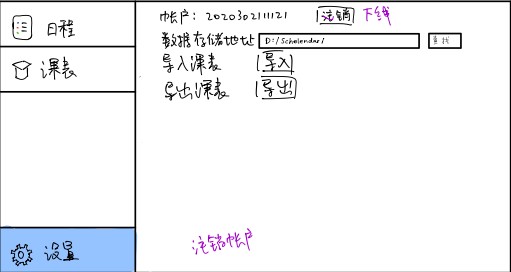 日程
课表
设置
帐户: 2020302111121 注销 下线
数据存储地址 D:/Scholendar/ 查找
导入课表 导入
导出课表 导出
注销帐户